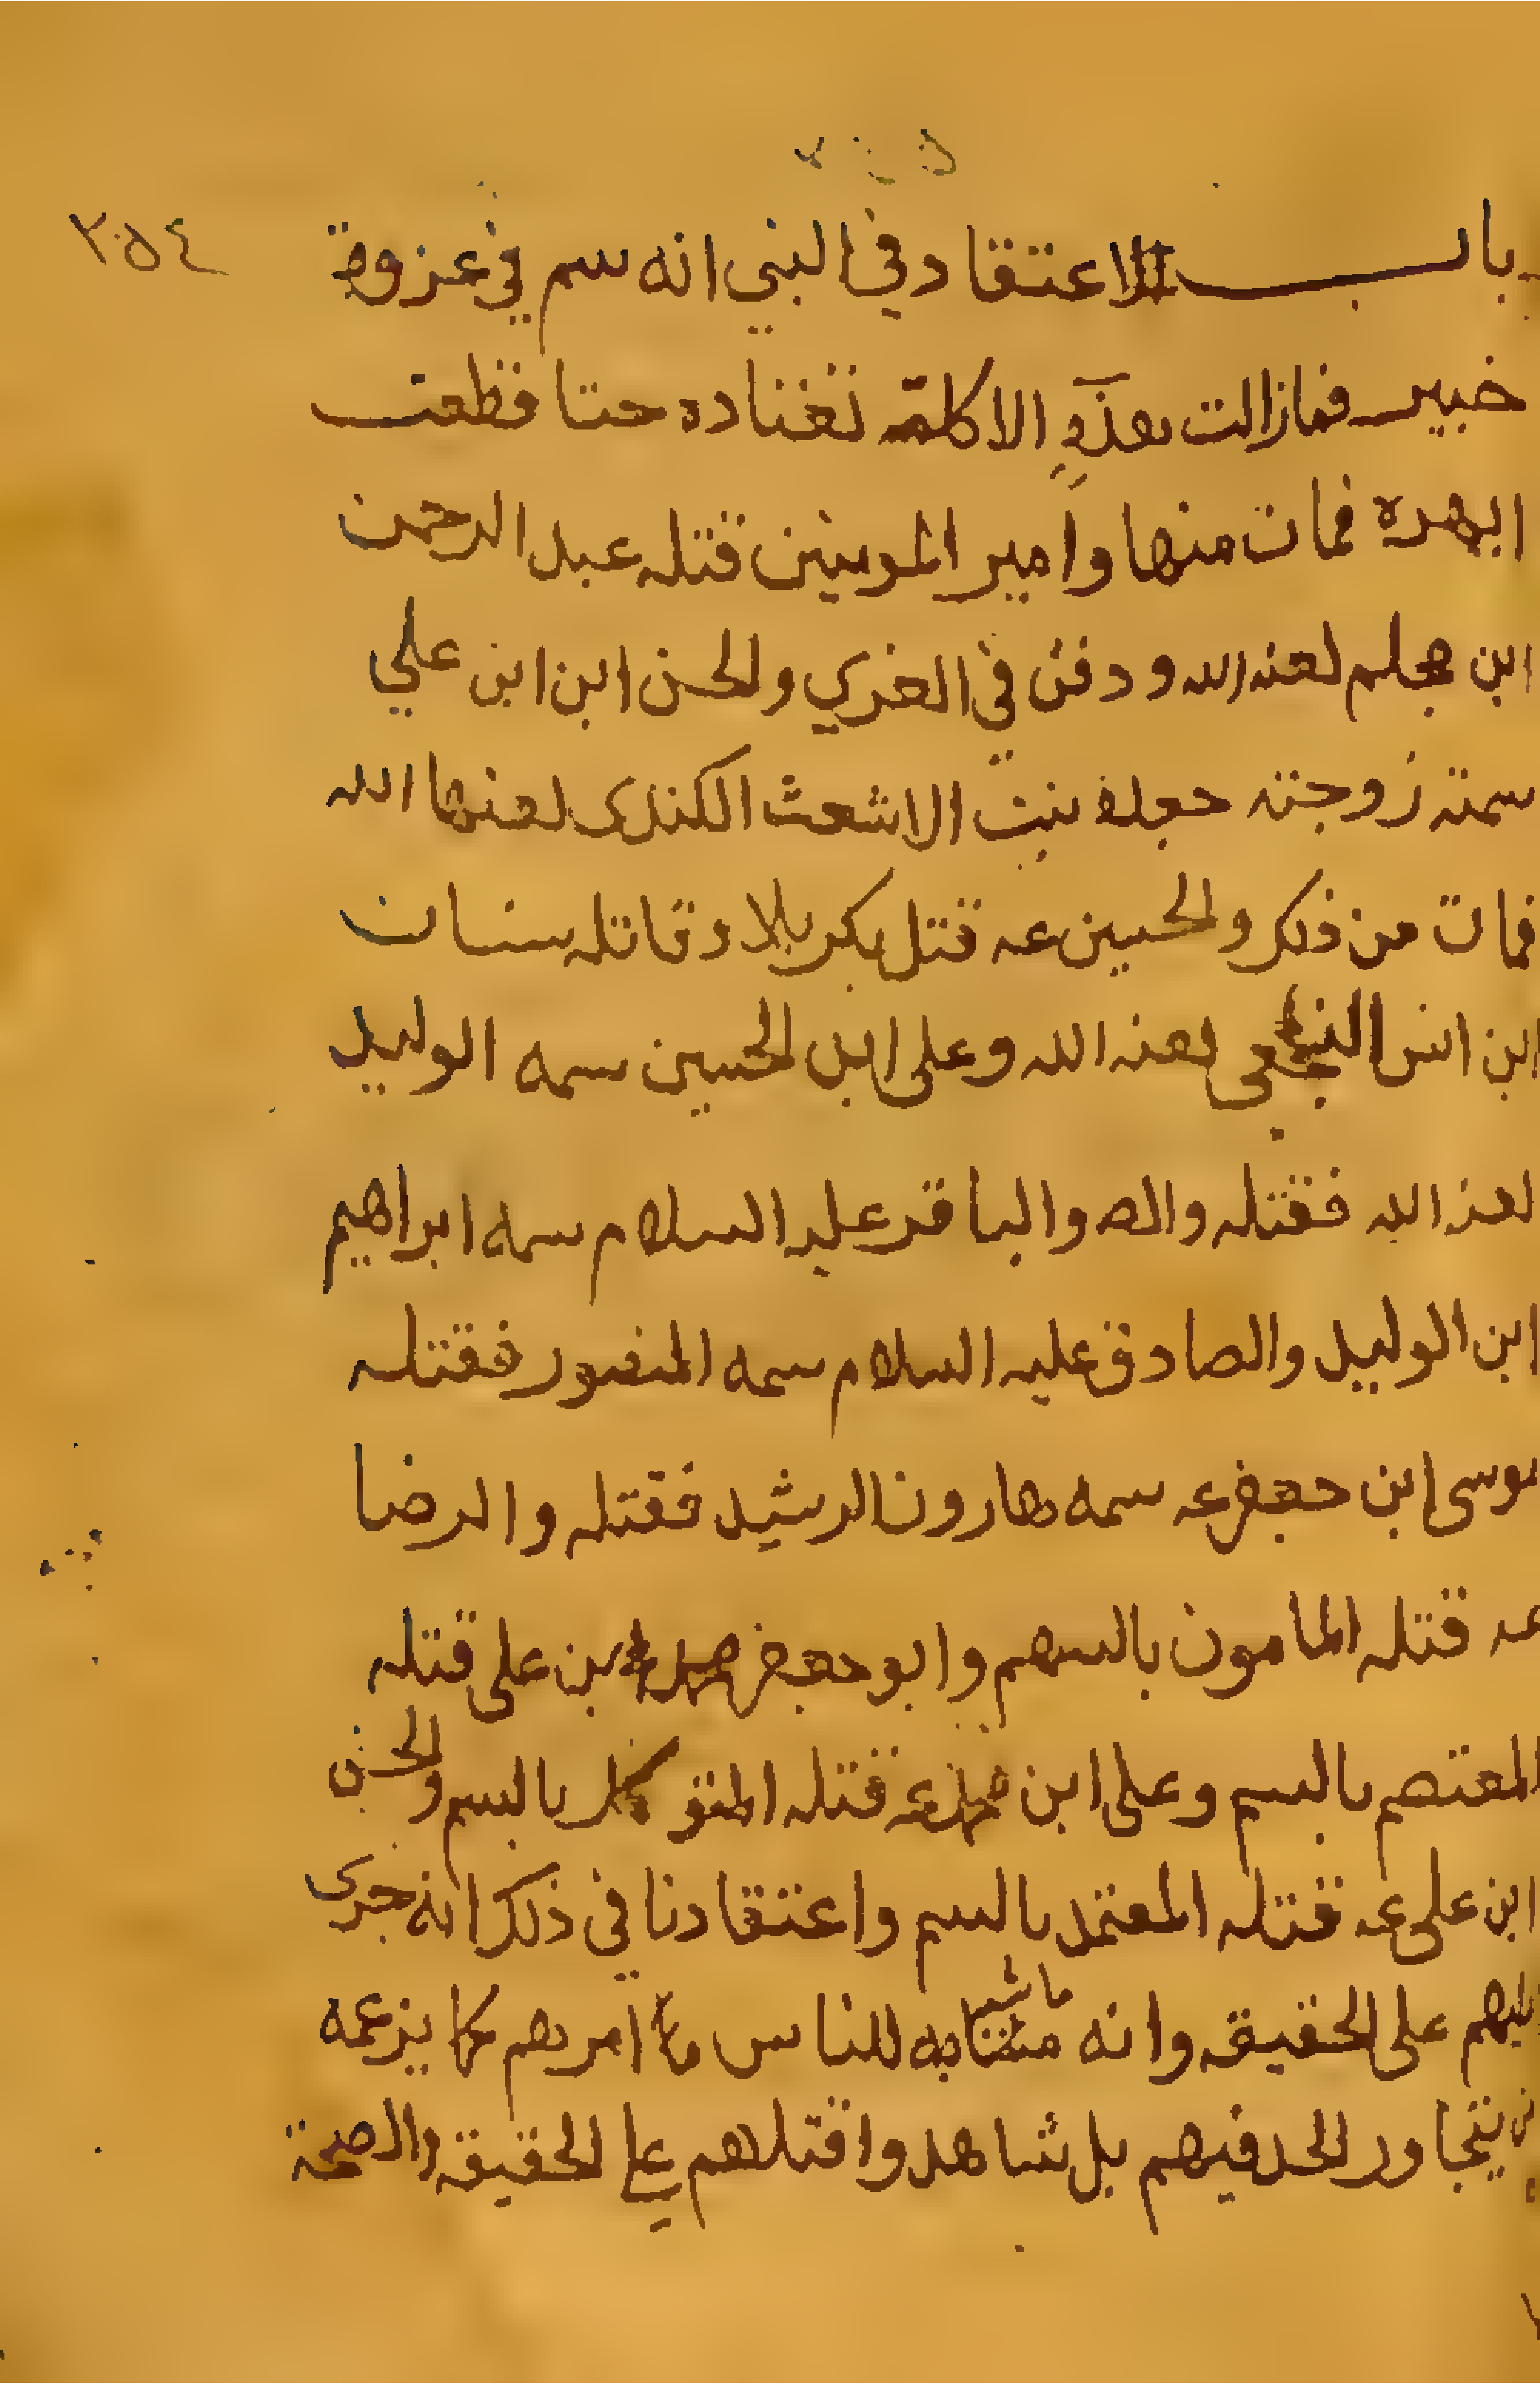 ٢٥٤
باب الاعتقاد في النبي انه سم في غزوة
خيبر فمازالت هذه الاكلة تغتاده حتا قطعت
ابهره فمات منها وامير المومنين قتله عبد الرحمن
ابن ملجم لعنه الله ودفن في الغري ولحسن ابن ابن علي
سمته زوجته جعدة بنت الاشعث الكندى لعنها الله
فمات من ذلك ولحسين عه قتل بكربلا وقاتله سنان
ابن انس النخعي لعنه الله وعلى ابن الحسين سمه الوليد
لعنه الله فقتله والباقر عليه السلام سمه ابراهيم
ابن الوليد والصادق عليه السلام سمه المنصور فقتله
موسى ابن جعفر عه سمه هارون الرشيد فقتله والرضا
عه قتله المامون بالسم وابو جعفر محمد بن على قتله
المعتصم بالسم وعلى ابن محمد عه قتله المتوكل بالسم والحسن
ابن على عه قتله المعتمد بالسم واعتقادنا في ذلك انه جرى
عليهم على الحقيقه وانه ماشبه للناس امرهم كما يزعمه
من يتجاور الحد فيهم بل شاهدوا قتلهم على الحقيقه والصحة